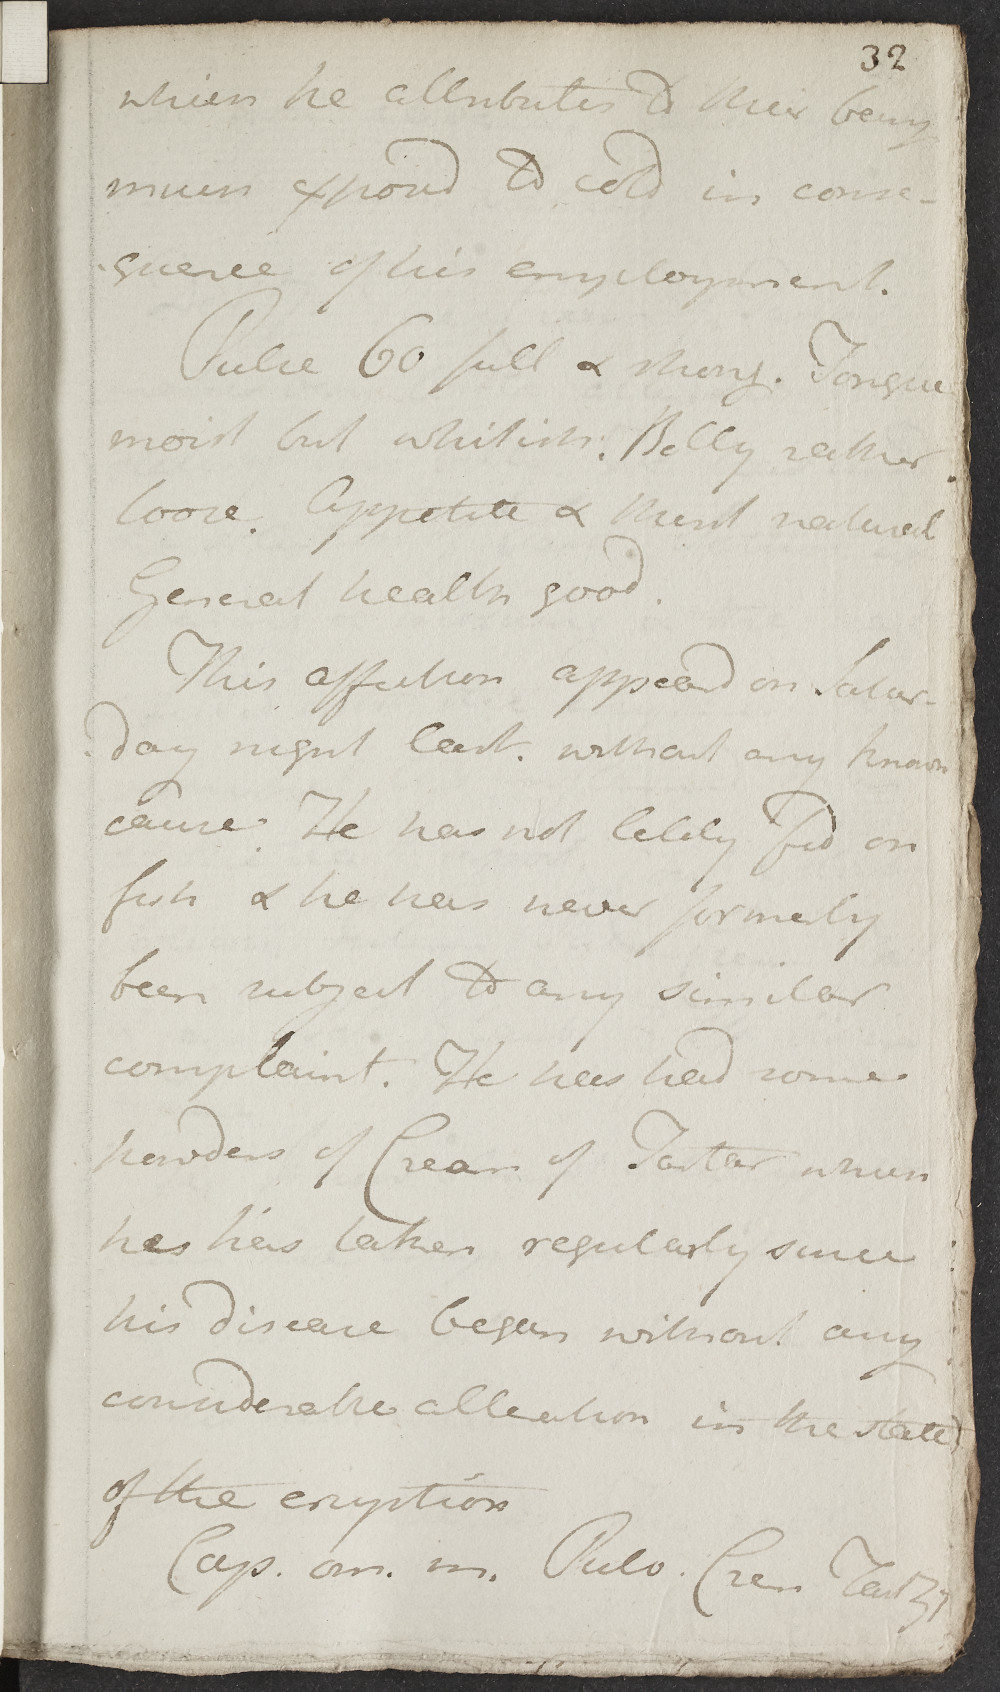 32
which he attributes to their being
much exposed to cold in conse-
quence of his employment.
Pulse 60 full & strong. Tongue
moist but whitish. Belly rather
loose. Appetite & thirst natural
General health good.
This affection appeard on Satur-
day night last. without any known
cause. He has not lately fed on
fish & he has never formerly
been subject to any similar
complaint. He has had some
powders of Cream of Tartar which
he has taken regularly since
his disease began without any
considerable alteration in the state
of the eruption
Cap. om. m. Pulv. Crem Tart